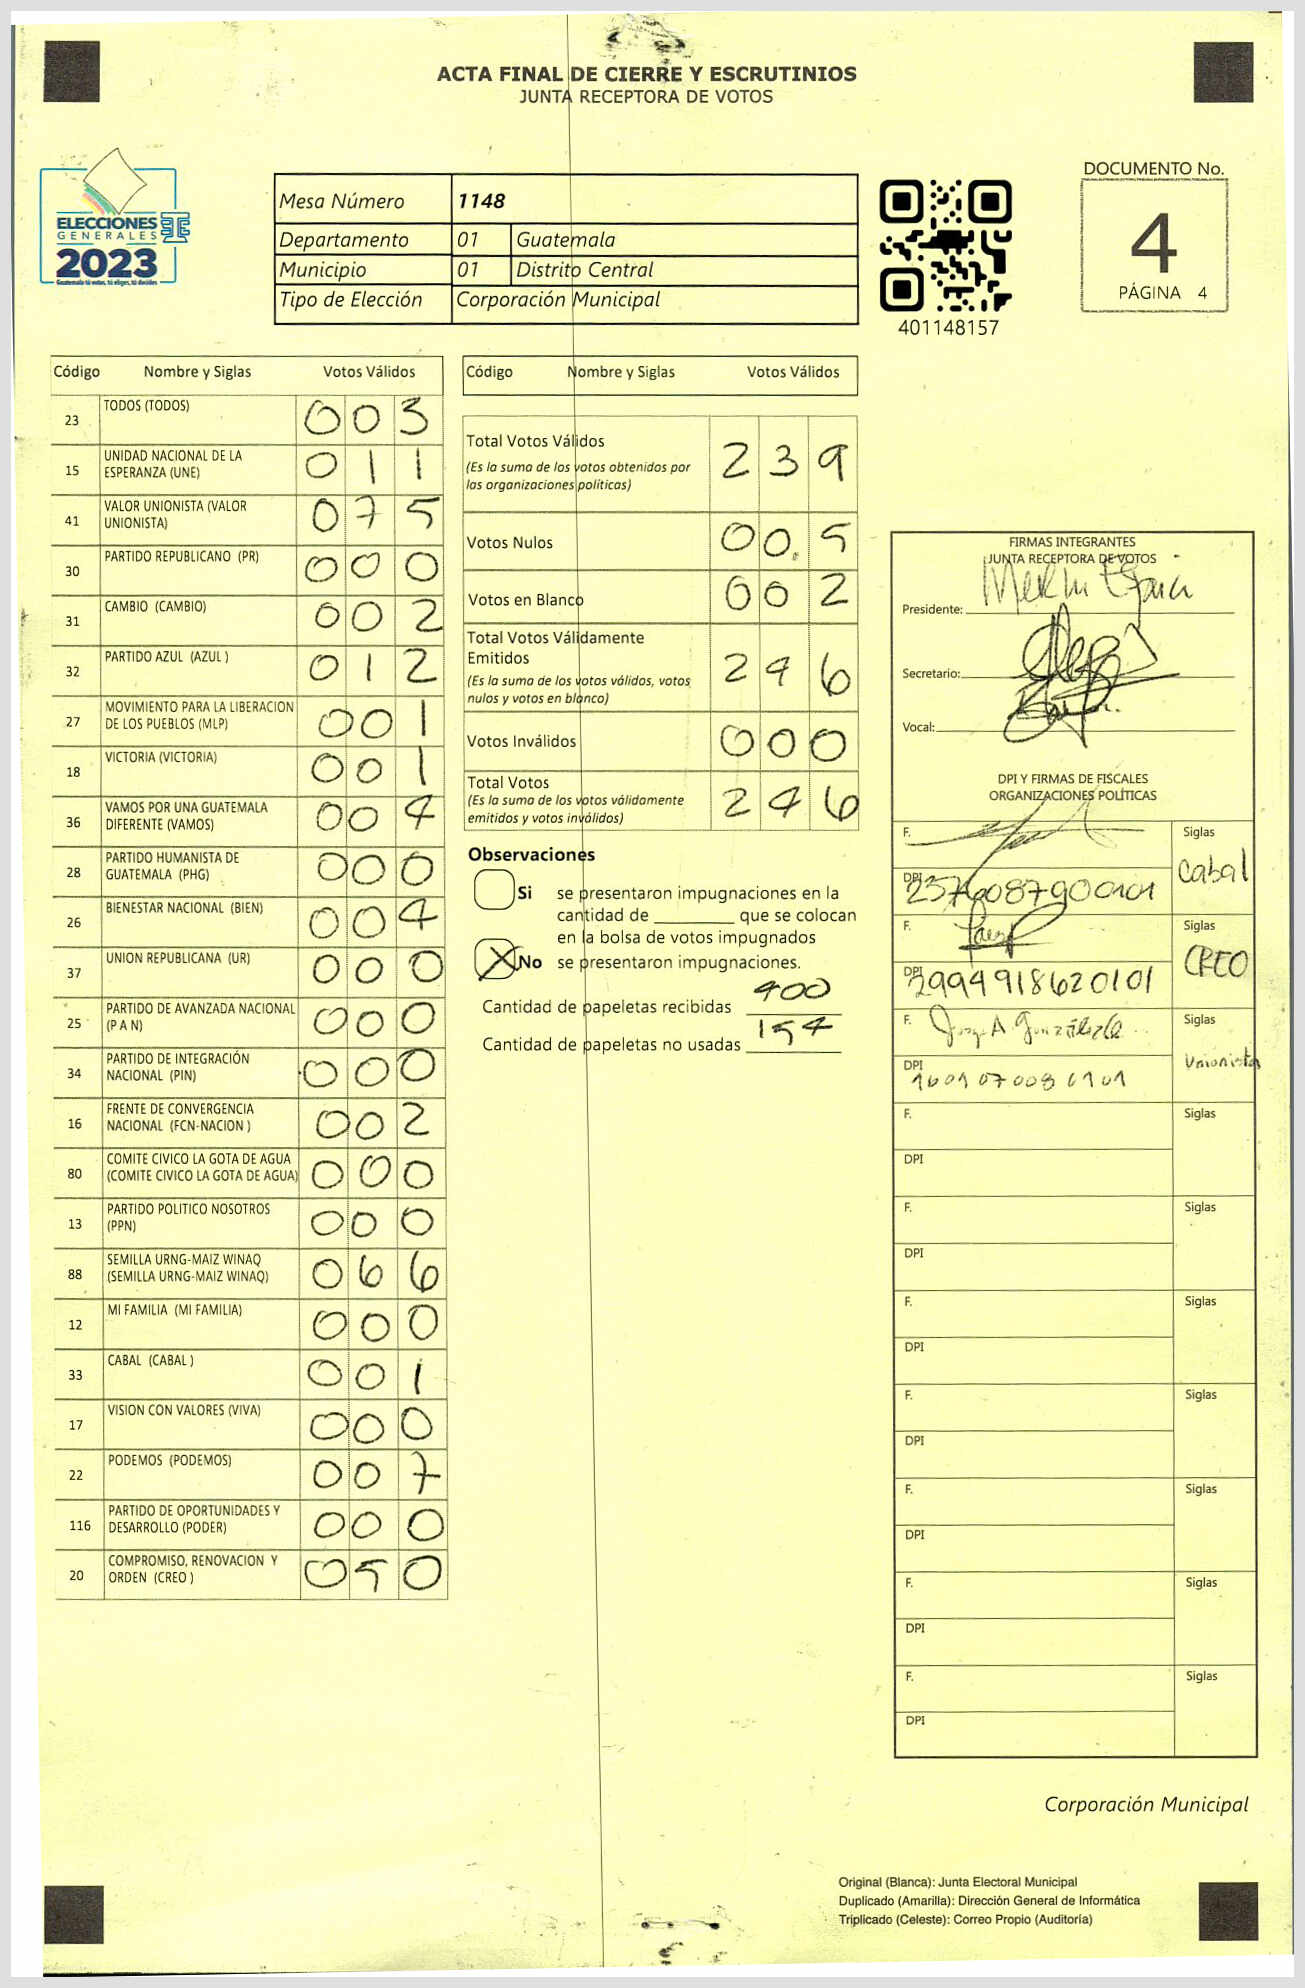 ACTA FINAL DE CIERRE Y ESCRUTINIOS
JUNTA RECEPTORA DE VOTOS
ELECCIONES
GENERALES
2023
Guatemala tú votas, tú eliges, tú decides
Mesa Número 1148
Departamento 01 Guatemala
Municipio 01 Distrito Central
Tipo de Elección Corporación Municipal
401148157
DOCUMENTO No.
4
PÁGINA 4
Código Nombre y Siglas Votos Válidos
23 TODOS (TODOS) 003
15 UNIDAD NACIONAL DE LA ESPERANZA (UNE) 011
41 VALOR UNIONISTA (VALOR UNIONISTA) 075
30 PARTIDO REPUBLICANO (PR) 000
31 CAMBIO (CAMBIO) 002
32 PARTIDO AZUL (AZUL ) 012
27 MOVIMIENTO PARA LA LIBERACION DE LOS PUEBLOS (MLP) 001
18 VICTORIA (VICTORIA) 001
36 VAMOS POR UNA GUATEMALA DIFERENTE (VAMOS) 004
28 PARTIDO HUMANISTA DE GUATEMALA (PHG) 000
26 BIENESTAR NACIONAL (BIEN) 004
37 UNION REPUBLICANA (UR) 000
25 PARTIDO DE AVANZADA NACIONAL (P A N) 000
34 PARTIDO DE INTEGRACIÓN NACIONAL (PIN) 000
16 FRENTE DE CONVERGENCIA NACIONAL (FCN-NACION ) 002
80 COMITE CIVICO LA GOTA DE AGUA (COMITE CIVICO LA GOTA DE AGUA) 000
13 PARTIDO POLITICO NOSOTROS (PPN) 000
88 SEMILLA URNG-MAIZ WINAQ (SEMILLA URNG-MAIZ WINAQ) 066
12 MI FAMILIA (MI FAMILIA) 000
33 CABAL (CABAL ) 001
17 VISION CON VALORES (VIVA) 000
22 PODEMOS (PODEMOS) 007
116 PARTIDO DE OPORTUNIDADES Y DESARROLLO (PODER) 000
20 COMPROMISO, RENOVACION Y ORDEN (CREO ) 050
Código Nombre y Siglas Votos Válidos
Total Votos Válidos 239
(Es la suma de los votos obtenidos por
las organizaciones políticas)
Votos Nulos 005
Votos en Blanco 002
Total Votos Válidamente
Emitidos 246
(Es la suma de los votos válidos, votos
nulos y votos en blanco)
Votos Inválidos 000
Total Votos 246
(Es la suma de los votos válidamente
emitidos y votos inválidos)
Observaciones
Si se presentaron impugnaciones en la
cantidad de ________ que se colocan
en la bolsa de votos impugnados
X No se presentaron impugnaciones.
Cantidad de papeletas recibidas 400
Cantidad de papeletas no usadas 154
FIRMAS INTEGRANTES
JUNTA RECEPTORA DE VOTOS
Presidente:
Secretario:
Vocal:
DPI Y FIRMAS DE FISCALES
ORGANIZACIONES POLÍTICAS
F. Siglas
DPI Cabal
F. Siglas
DPI 2994918620101 CREO
F. Jorge A. Siglas
DPI Unionista
F. Siglas
DPI
F. Siglas
DPI
F. Siglas
DPI
F. Siglas
DPI
F. Siglas
DPI
F. Siglas
DPI
F. Siglas
DPI
Corporación Municipal
Original (Blanca): Junta Electoral Municipal
Duplicado (Amarilla): Dirección General de Informática
Triplicado (Celeste): Correo Propio (Auditoría)